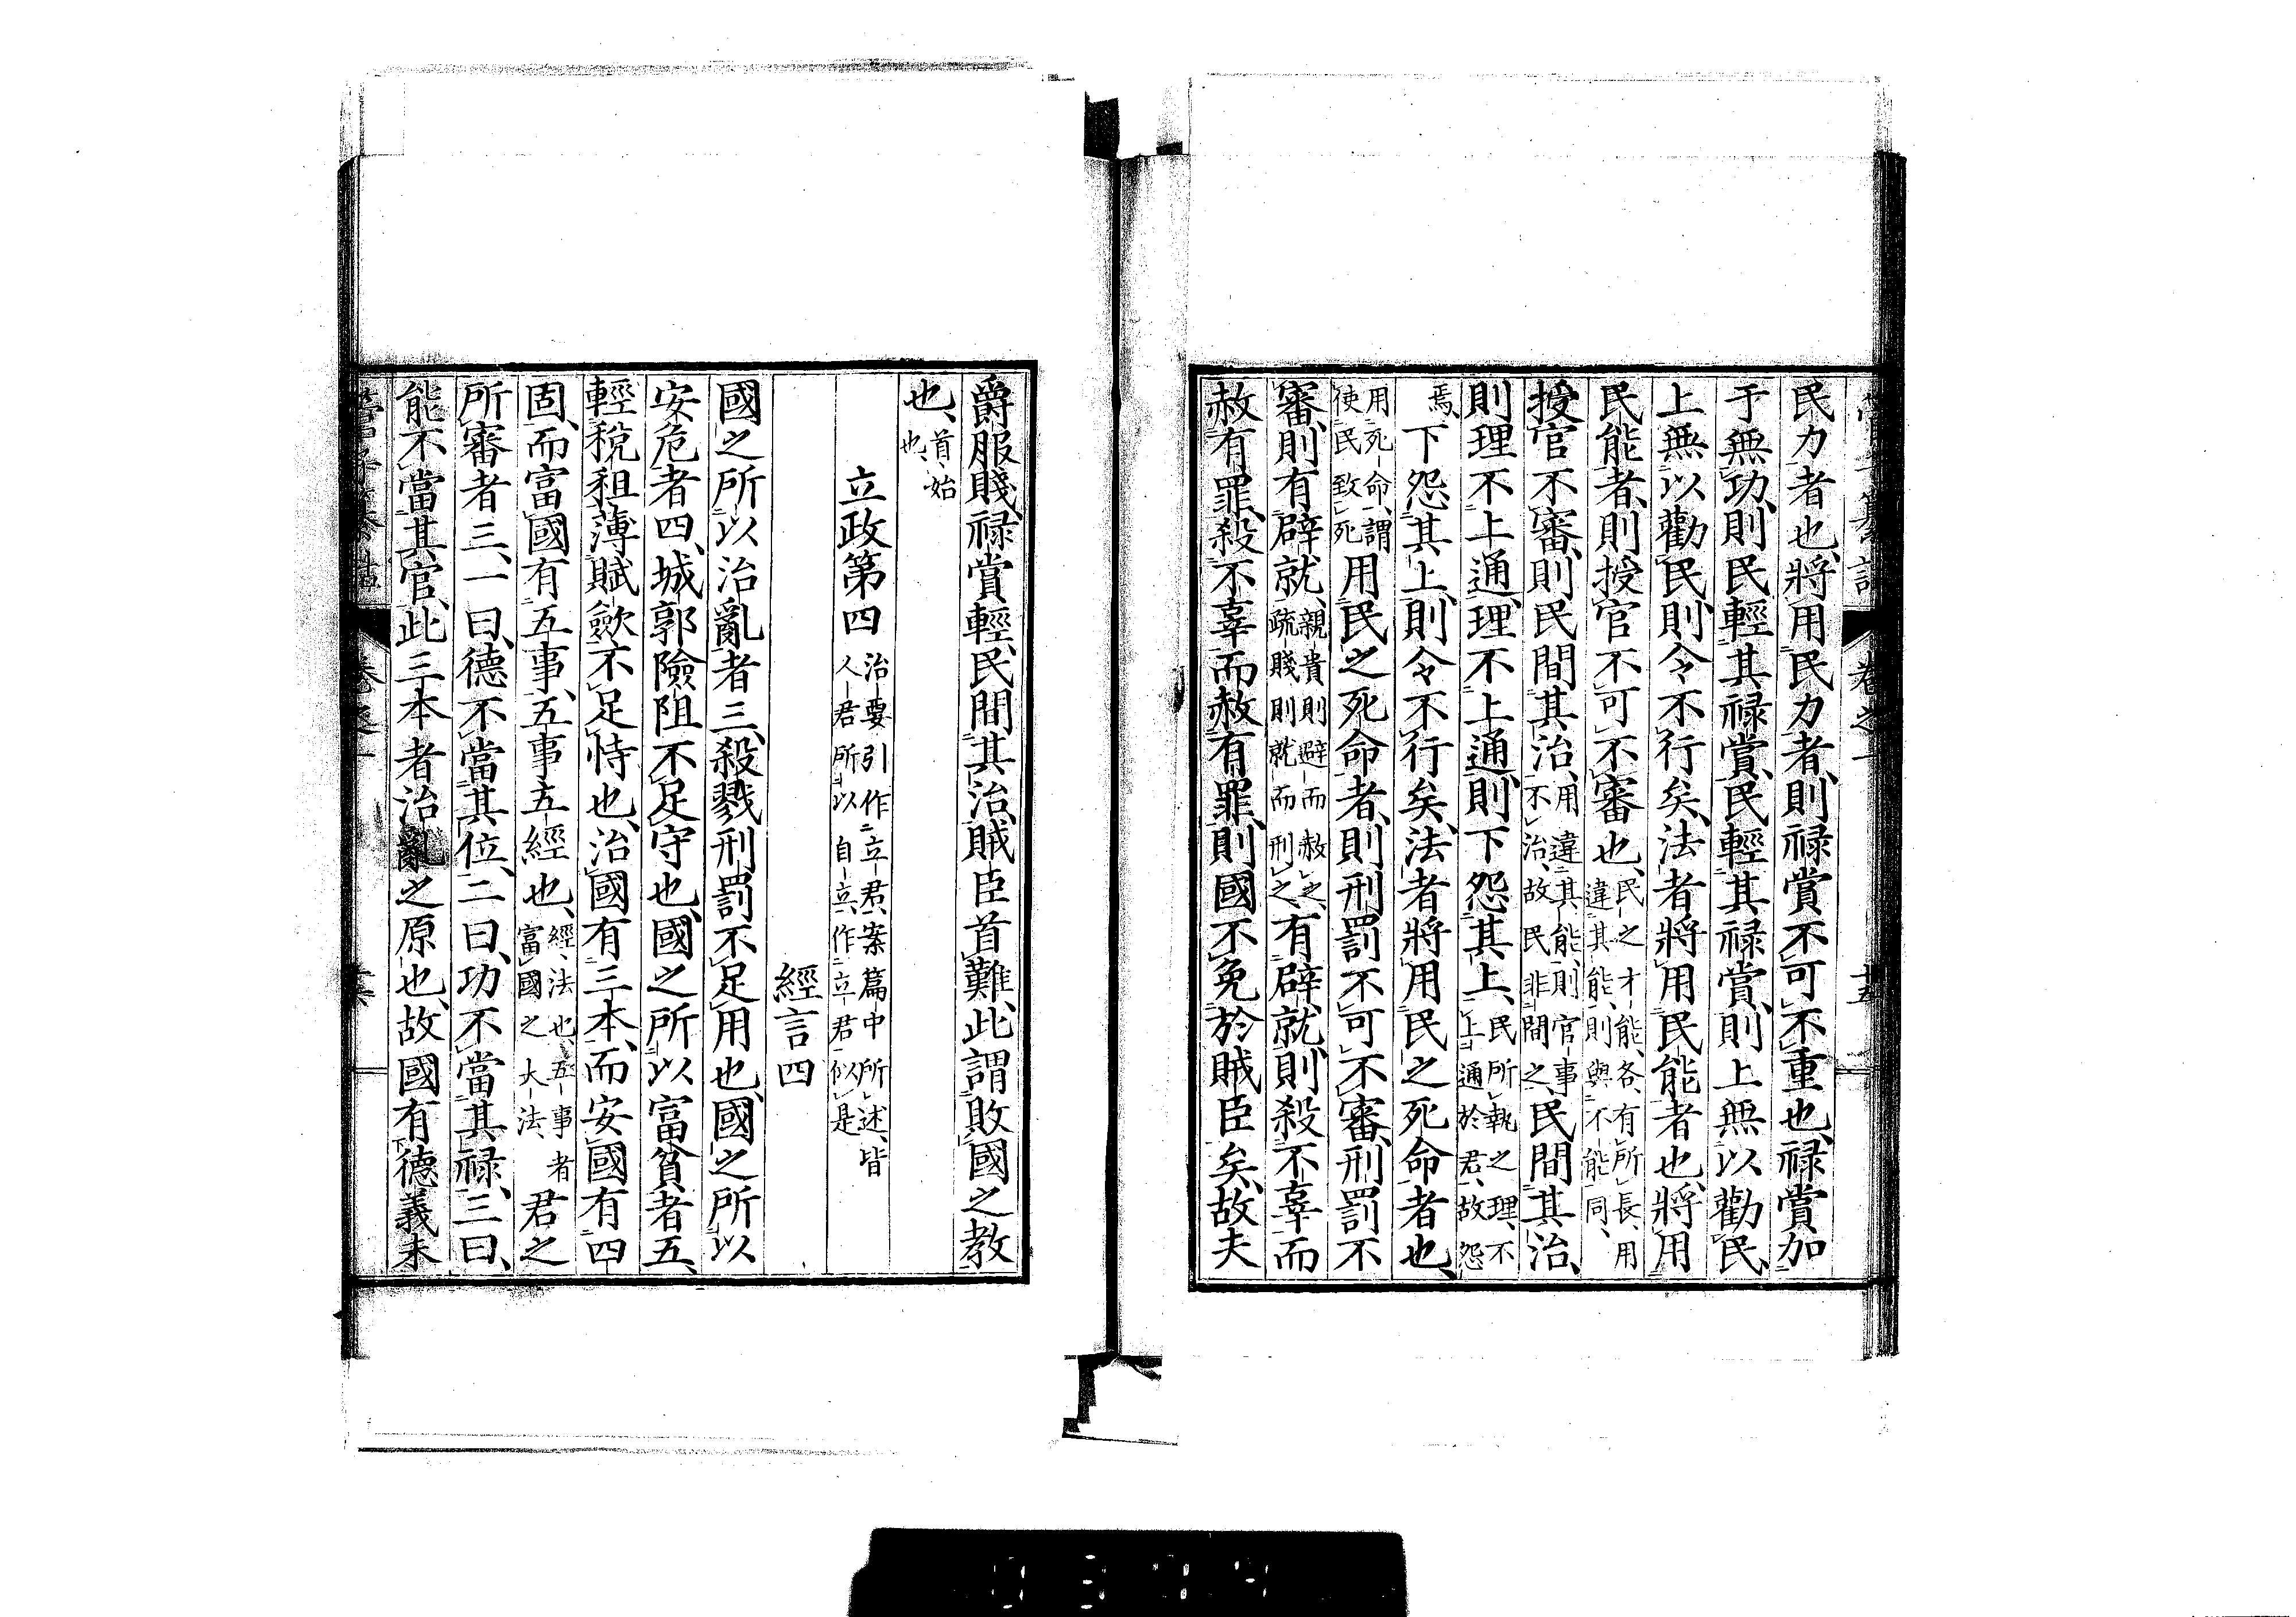 民力者也、將用民力者、則祿賞不可不重也、祿賞加
于無功、則民輕其祿賞、民輕其祿賞、則上無以勸民、
上無以勸民、則令不行矣、法者將用民能者也、將用
民能者、則授官不可不審也、民之才能、各有所長、用違其能、則與不能同、
授官不審、則民閒其治、用違其能、則官事不治、故民非閒之、民閒其治、
則理不上通、理不上通、則下怨其上、民所執之理、不上通於君、故怨
焉、下怨其上、則令不行矣、法者將用民之死命者也、
用死命、謂使民致死用民之死命者、則刑罰不可不審、刑罰不
審、則有辟就、親貴則避而赦之、疏賤則就而刑之、有辟就、則殺不辜而
赦有罪、殺不辜而赦有罪、則國不免於賊臣矣、故夫
爵服賤、祿賞輕、民閒其治、賊臣首難、此謂敗國之教
也、首、始也、
立政第四 治要引作立君、案篇中所述、皆人君所以自立、作立君似是
經言四
國之所以治亂者三、殺戮刑罰不足用也、國之所以
安危者四、城郭險阻不足守也、國之所以富貧者五、
輕稅租薄賦歛不足恃也、治國有三本、而安國有四
固、而富國有五事、五事五經也、經、法也、五事者富國之大法、君之
所審者三、一曰、德不當其位、二曰、功不當其祿、三曰、
能不當其官、此三本者治亂之原也、故國有德義未